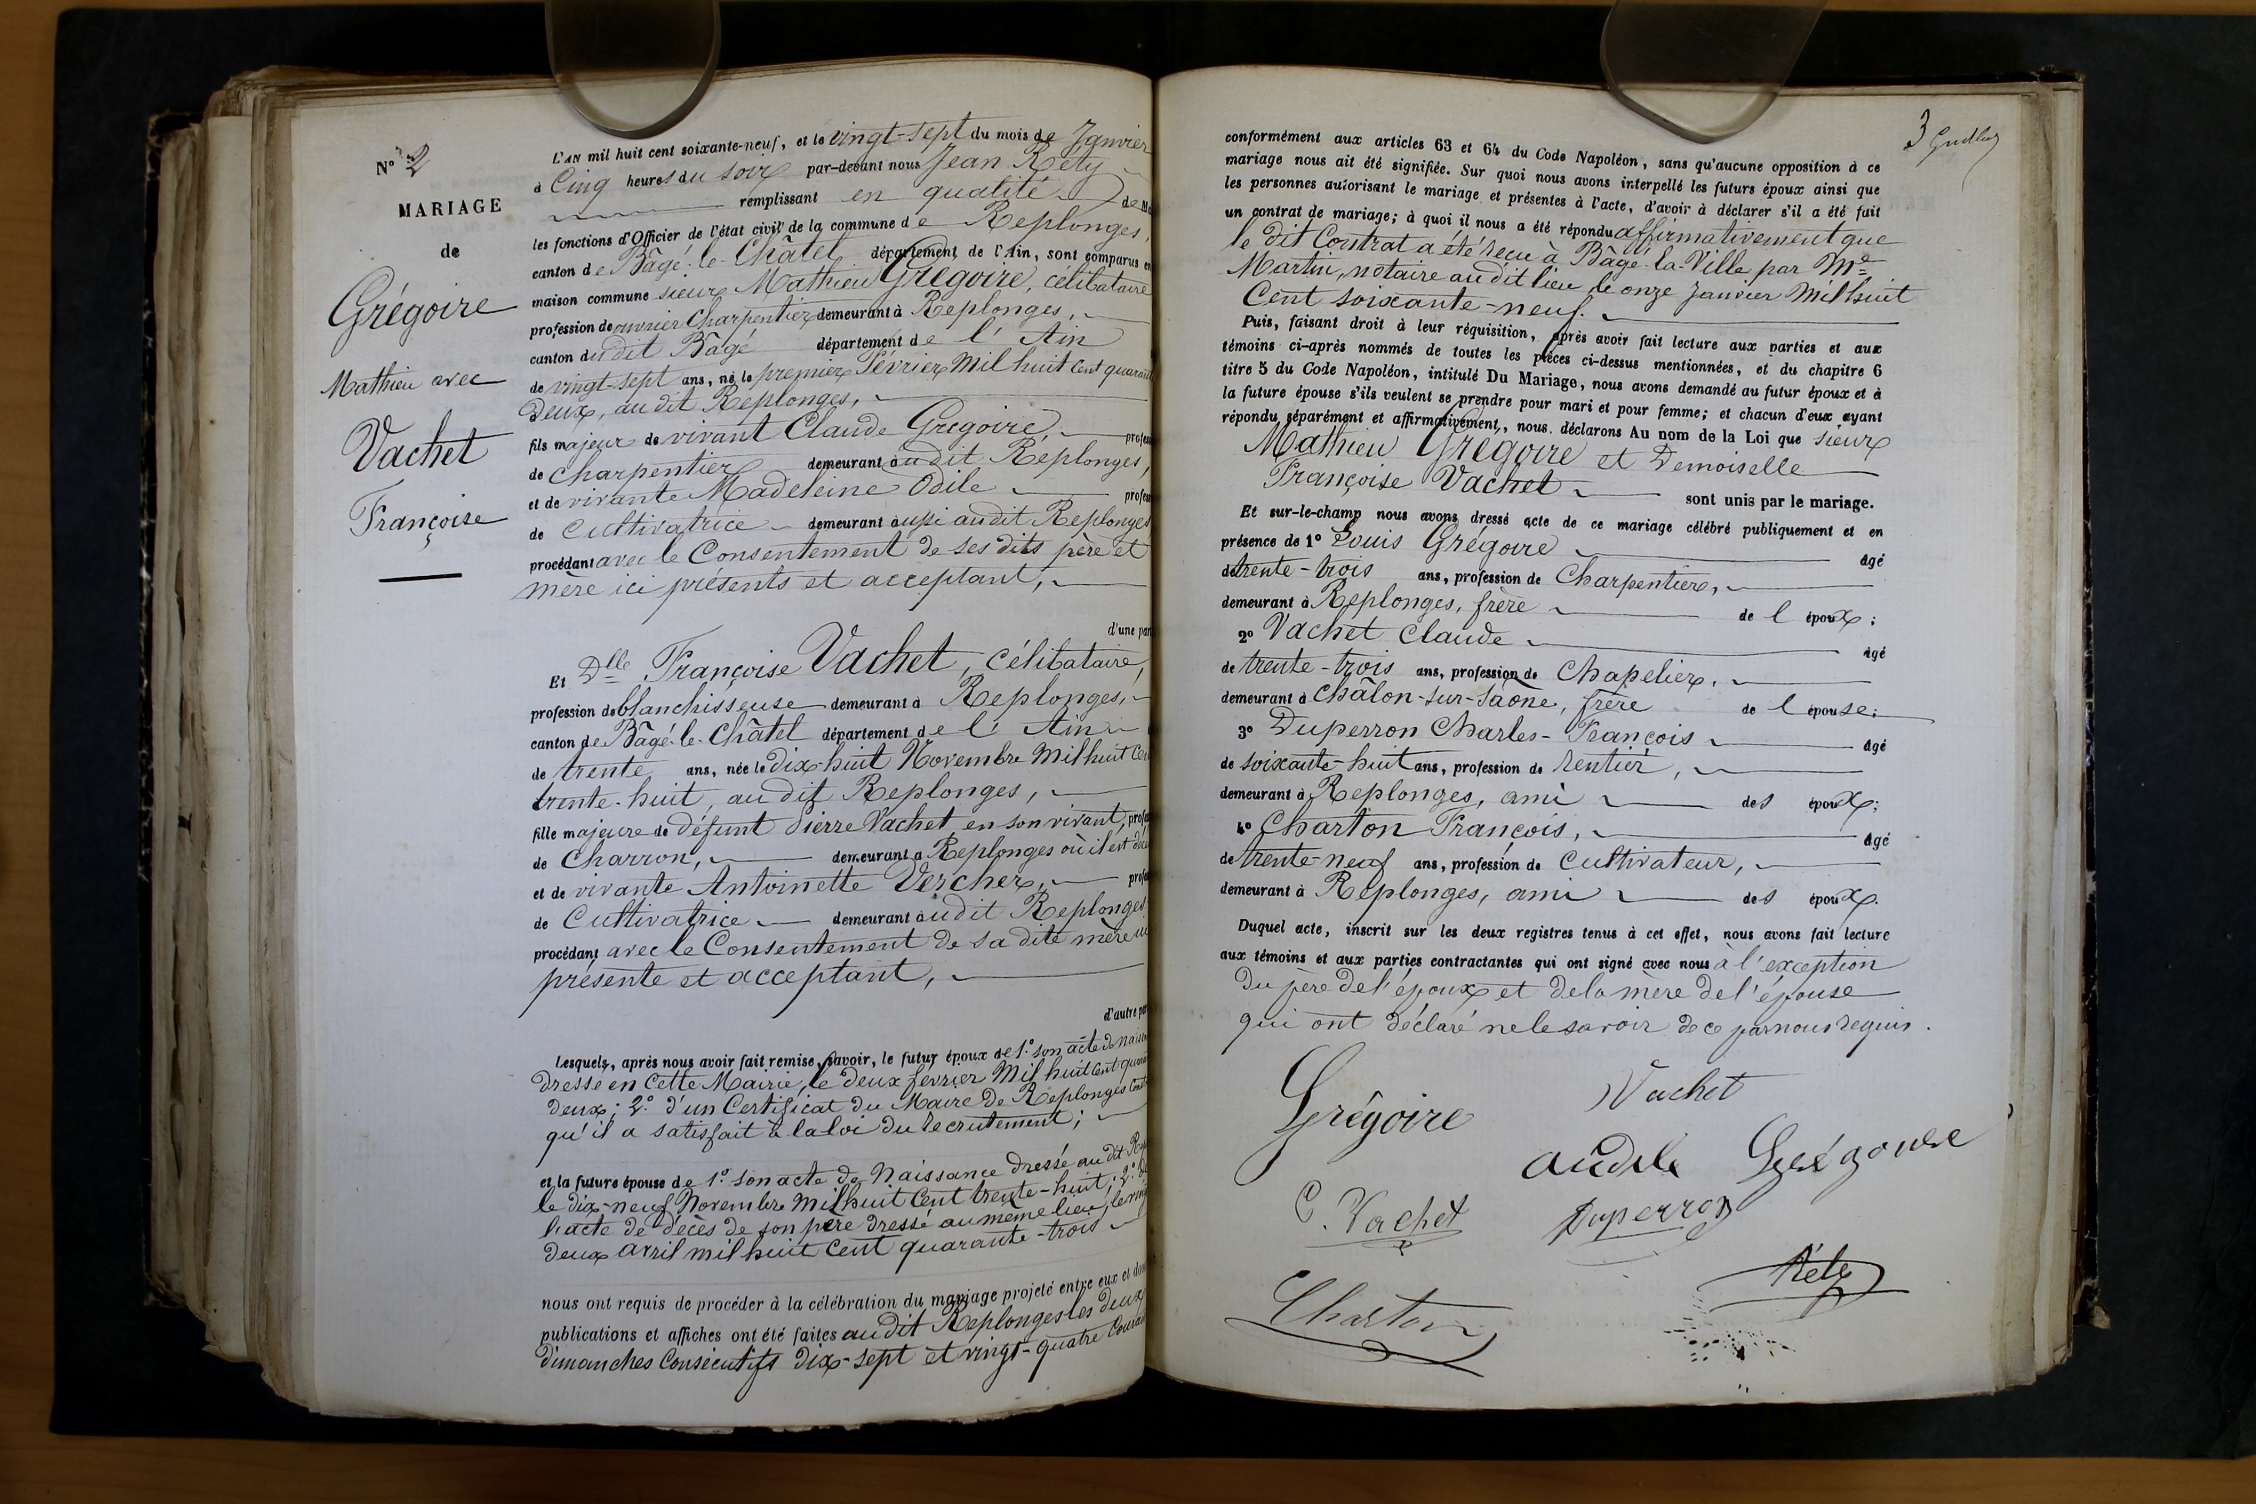 N° 2
MARIAGE
de
Grégoire
Mathieu avec
Vachet
Françoise
L'AN mil huit cent soixante-neuf, et le vingt-sept du mois de Janvier
à Cinq heures du soir par-devant nous Jean Réty
remplissant en qualité de Ma
les fonctions d'Officier de l'état civil de la commune de Replonges,
canton de Bâgé-le-Châtel département de l'Ain, sont comparus en
maison commune sieur Mathieu Grégoire, célibataire
profession de ouvrier Charpentier demeurant à Replonges,
canton dudit Bâgé département de l'Ain
de vingt-sept ans, né le premier Février Mil huit Cent quarante
Deux, audit Replonges,
fils majeur de vivant Claude Grégoire profess
de charpentier demeurant audit Replonges,
et de vivante Madeleine Odile profess
de Cultivatrice demeurant aussi audit Replonges
procédant avec le Consentement de ses dits père et
mère ici présents et acceptant,
d'une part
Et Dlle Françoise Vachet, célibataire,
profession de blanchisseuse demeurant à Replonges,
canton de Bâgé-le-Châtel département de l'Ain
de trente ans, née le Dix-huit Novembre Mil huit Cent
trente-huit, audit Replonges,
fille majeure de défunt Pierre Vachet en son vivant, profes
de Charron, demeurant à Replonges où il est décé
et de vivante Antoinette Vercher, profes
de Cultivatrice demeurant audit Replonges
procédant avec le Consentement de sa dite mère ici
présente et acceptant,
d'autre par
Lesquels, après nous avoir fait remise, savoir, le futur époux de 1° son acte de naiss
dressé en cette Mairie, le deux février Mil huit Cent quaran
deux; 2° d'un Certificat du Maire de Replonges Const
qu'il a satisfait à la loi du recrutement;
et la future épouse de 1° son acte de Naissance dressé audit Rep
le dix-neuf Novembre Mil huit Cent trente-huit; 2° de
l'acte de décès de son père dressé au même lieu, le vingt
deux avril mil huit cent quarante-trois
nous ont requis de procéder à la célébration du mariage projeté entre eux et dont
publications et affiches ont été faites audit Replonges les deux
dimanches Consécutifs dix-sept et vingt-quatre Courant
3
conformément aux articles 63 et 64 du Code Napoléon, sans qu'aucune opposition à ce
mariage nous ait été signifiée. Sur quoi nous avons interpellé les futurs époux ainsi que
les personnes autorisant le mariage et présentes à l'acte, d'avoir à déclarer s'il a été fait
un contrat de mariage; à quoi il nous a été répondu affirmativement que
le dit Contrat a été reçu à Bâgé-la-Ville par Me
Martin, notaire audit lieu, le onze Janvier Mil huit
Cent soixante-neuf.
Puis, faisant droit à leur réquisition, après avoir fait lecture aux parties et aux
témoins ci-après nommés de toutes les pièces ci-dessus mentionnées, et du chapitre 6
titre 5 du Code Napoléon, intitulé Du Mariage, nous avons demandé au futur époux et à
la future épouse s'ils veulent se prendre pour mari et pour femme; et chacun d'eux ayant
répondu séparément et affirmativement, nous déclarons Au nom de la Loi que sieur
Mathieu Grégoire et Demoiselle
Françoise Vachet sont unis par le mariage.
Et sur-le-champ nous avons dressé acte de ce mariage célébré publiquement et en
présence de 1° Louis Grégoire âgé
de trente-trois ans, profession de Charpentier,
demeurant à Replonges, frère de l'époux;
2° Vachet Claude âgé
de trente-trois ans, profession de Chapelier,
demeurant à Châlon-sur-Saône, frère de l'épouse;
3° Duperron Charles-François âgé
de soixante-huit ans, profession de rentier,
demeurant à Replonges, ami des époux;
4° Charton François, âgé
de trente-neuf ans, profession de Cultivateur,
demeurant à Replonges, ami des époux.
Duquel acte, inscrit sur les deux registres tenus à cet effet, nous avons fait lecture
aux témoins et aux parties contractantes qui ont signé avec nous à l'exception
du père de l'époux et de la mère de l'épouse
qui ont déclaré ne le savoir de ce par nous requis.
Grégoire
Vachet
audile Grégoire
C. Vachet
Duperron
Réty
Charton